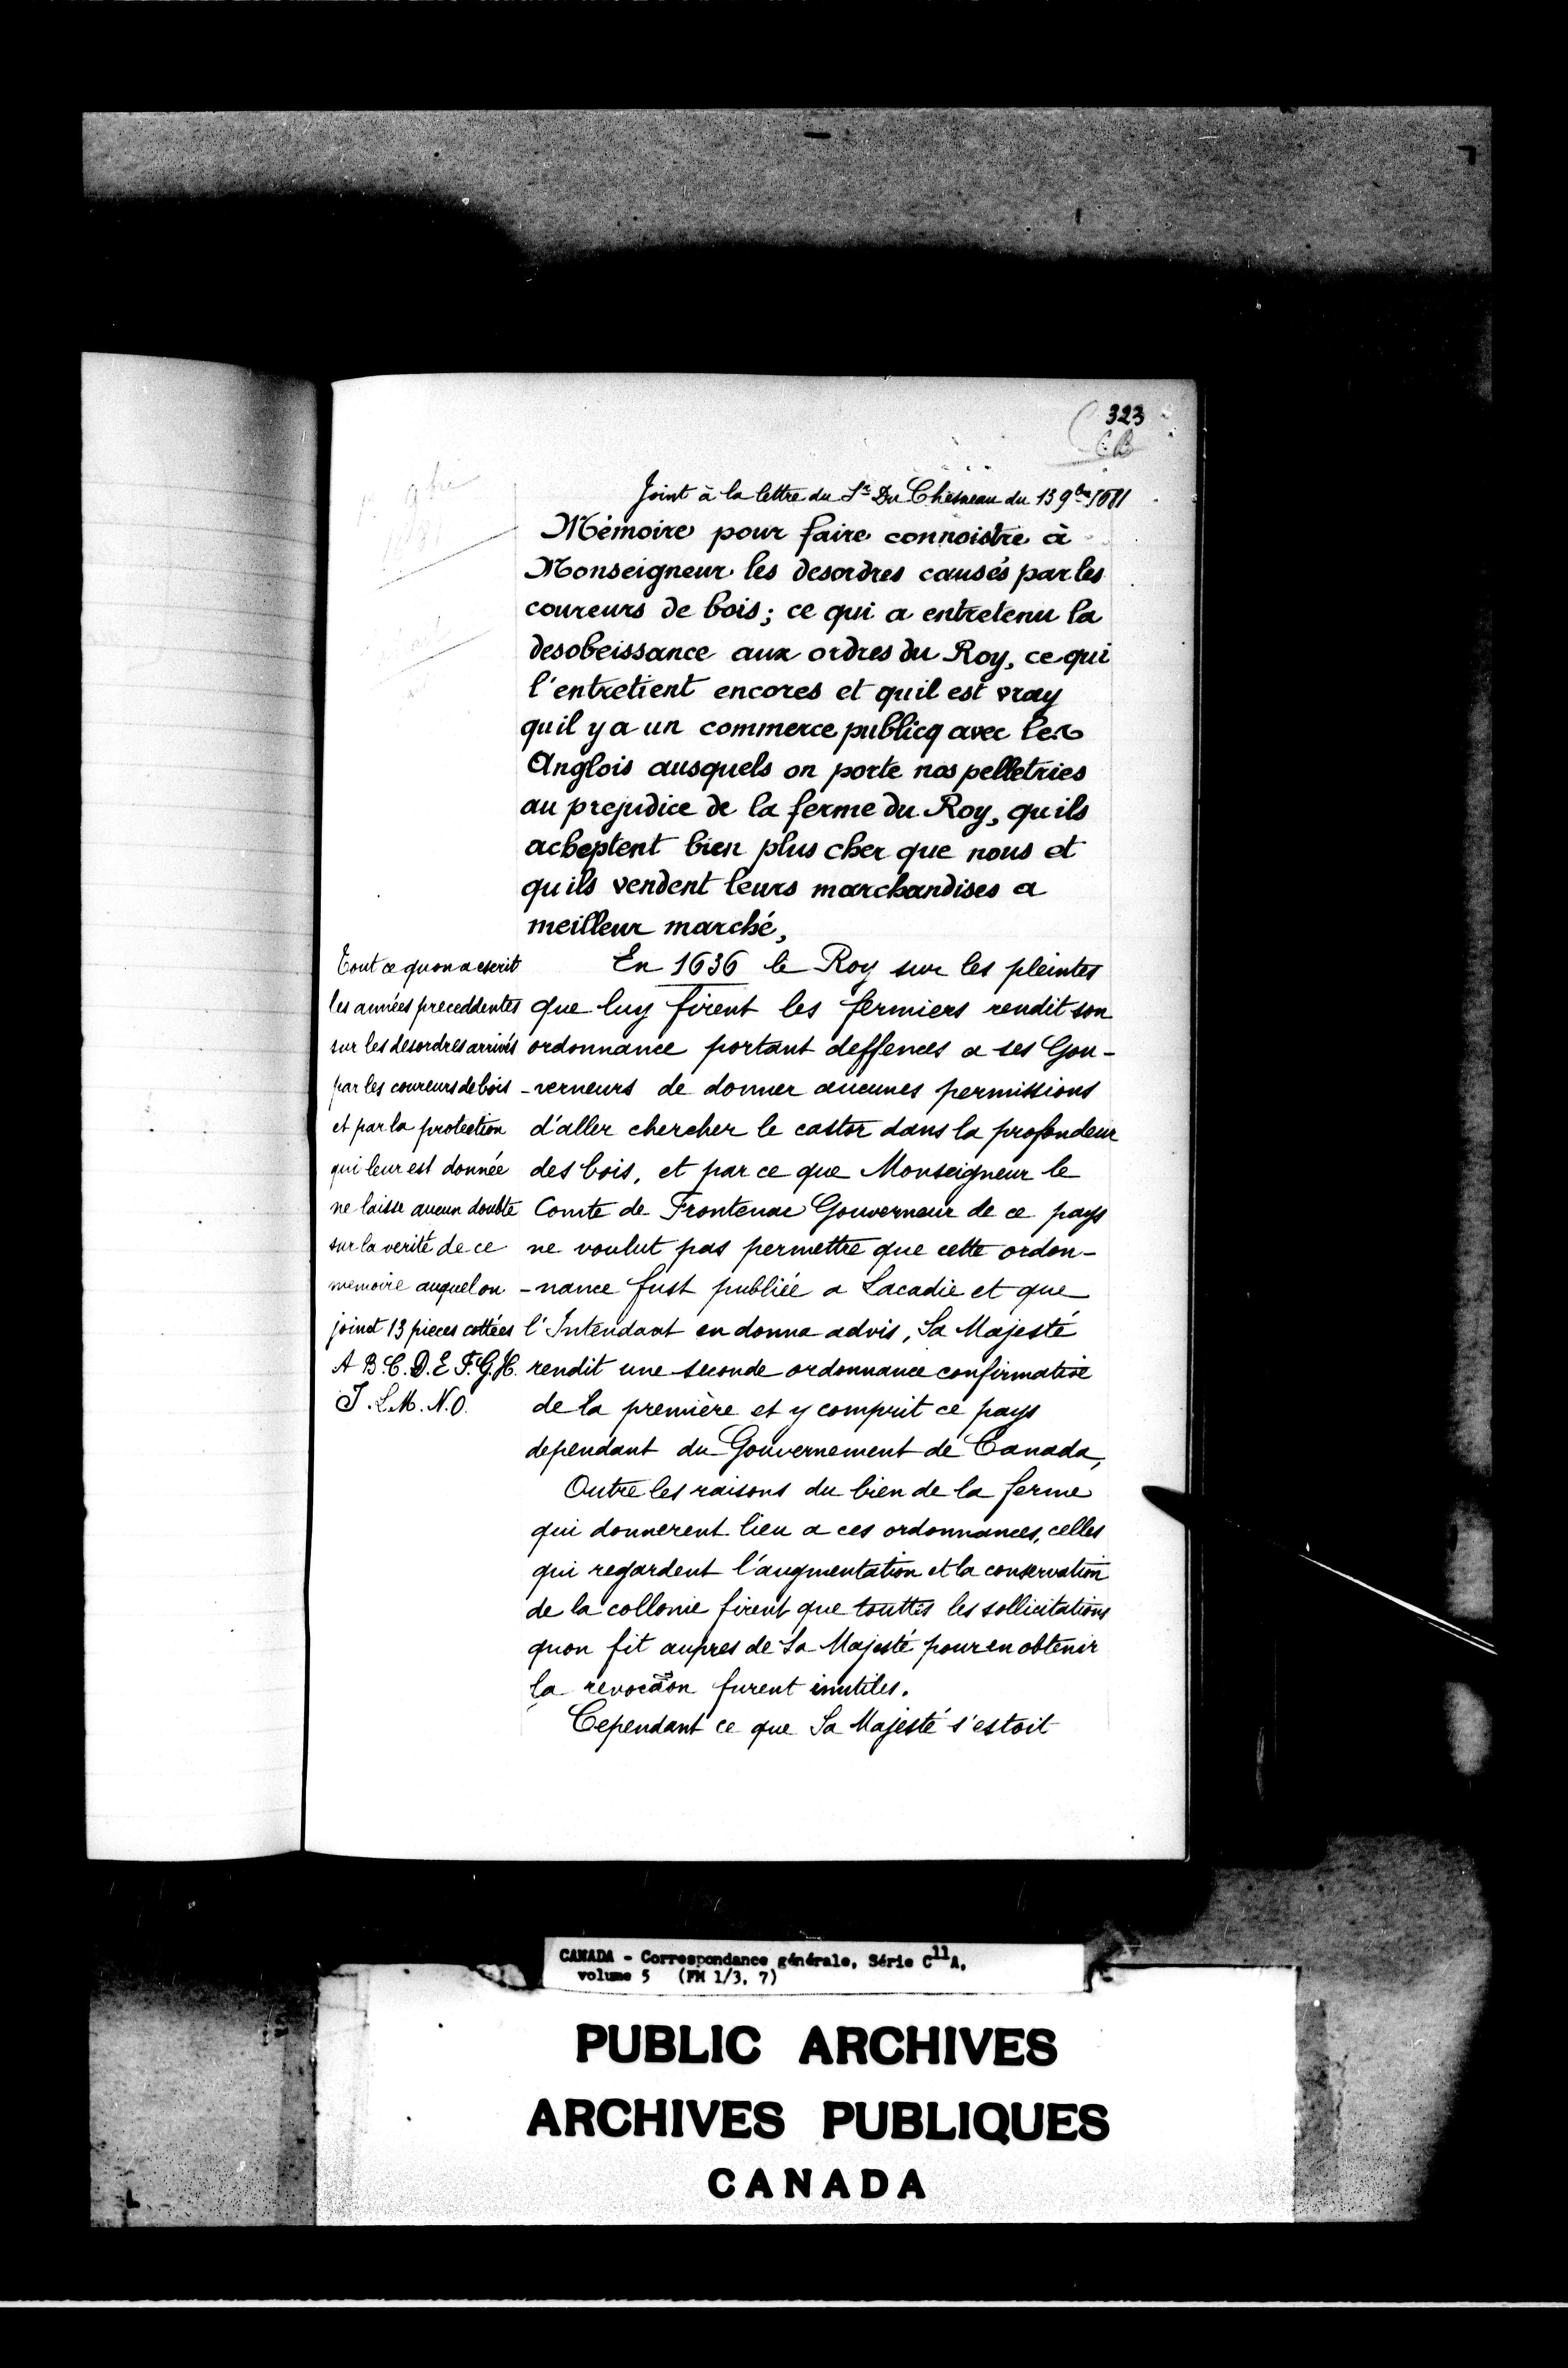 323
Joint à la lettre du Sr Du Chesneau du 13 9bre 1681
Mémoire pour faire connoistre à
Monseigneur les desordres causés par les
coureurs de bois; ce qui a entretenu la
desobeissance aux ordres du Roy, ce qui
l'entretient encores et quil est vray
quil y a un commerce publicq avec les
Anglois ausquels on porte nos pelletries
au prejudice de la ferme du Roy, quils
acheptent bien plus cher que nous et
quils vendent leurs marchandises a
meilleur marché,
Tout ce quon a escrit
les années preceddentes
sur les desordres arrivés
par les coureurs de bois
et par la protection
qui leur est donnée
ne laisse aucun doubte
sur la verité de ce
memoire auquel on
joinct 13 pieces cottées
A B. C. D. E F. G. H.
I. L. M. N. O.
En 1636 le Roy sur les pleintes
que luy firent les fermiers rendit son
ordonnance portant deffences a ses Gou-
-verneurs de donner aucunes permissions
d'aller chercher le castor dans la profondeur
des bois, et par ce que Monseigneur le
Comte de Frontenac Gouverneur de ce pays
ne voulut pas permettre que cette ordon-
-nance fust publiée a Lacadie et que
l'Intendant en donna advis, Sa Majesté
rendit une seconde ordonnance confirmative
de la première et y comprit ce pays
dependant du Gouvernement de Canada,
Outre les raisons du bien de la ferme
qui donnerent lieu a ces ordonnances, celles
qui regardent l'augmentation et la conservation
de la collonie firent que touttes les sollicitations
quon fit aupres de Sa Majesté pour en obtenir
la revocaon furent inutiles.
Cependant ce que Sa Majesté s'estoit
CANADA - Correspondance générale, Série C11A,
volume 5 (FM 1/3, 7)
PUBLIC ARCHIVES
ARCHIVES PUBLIQUES
CANADA